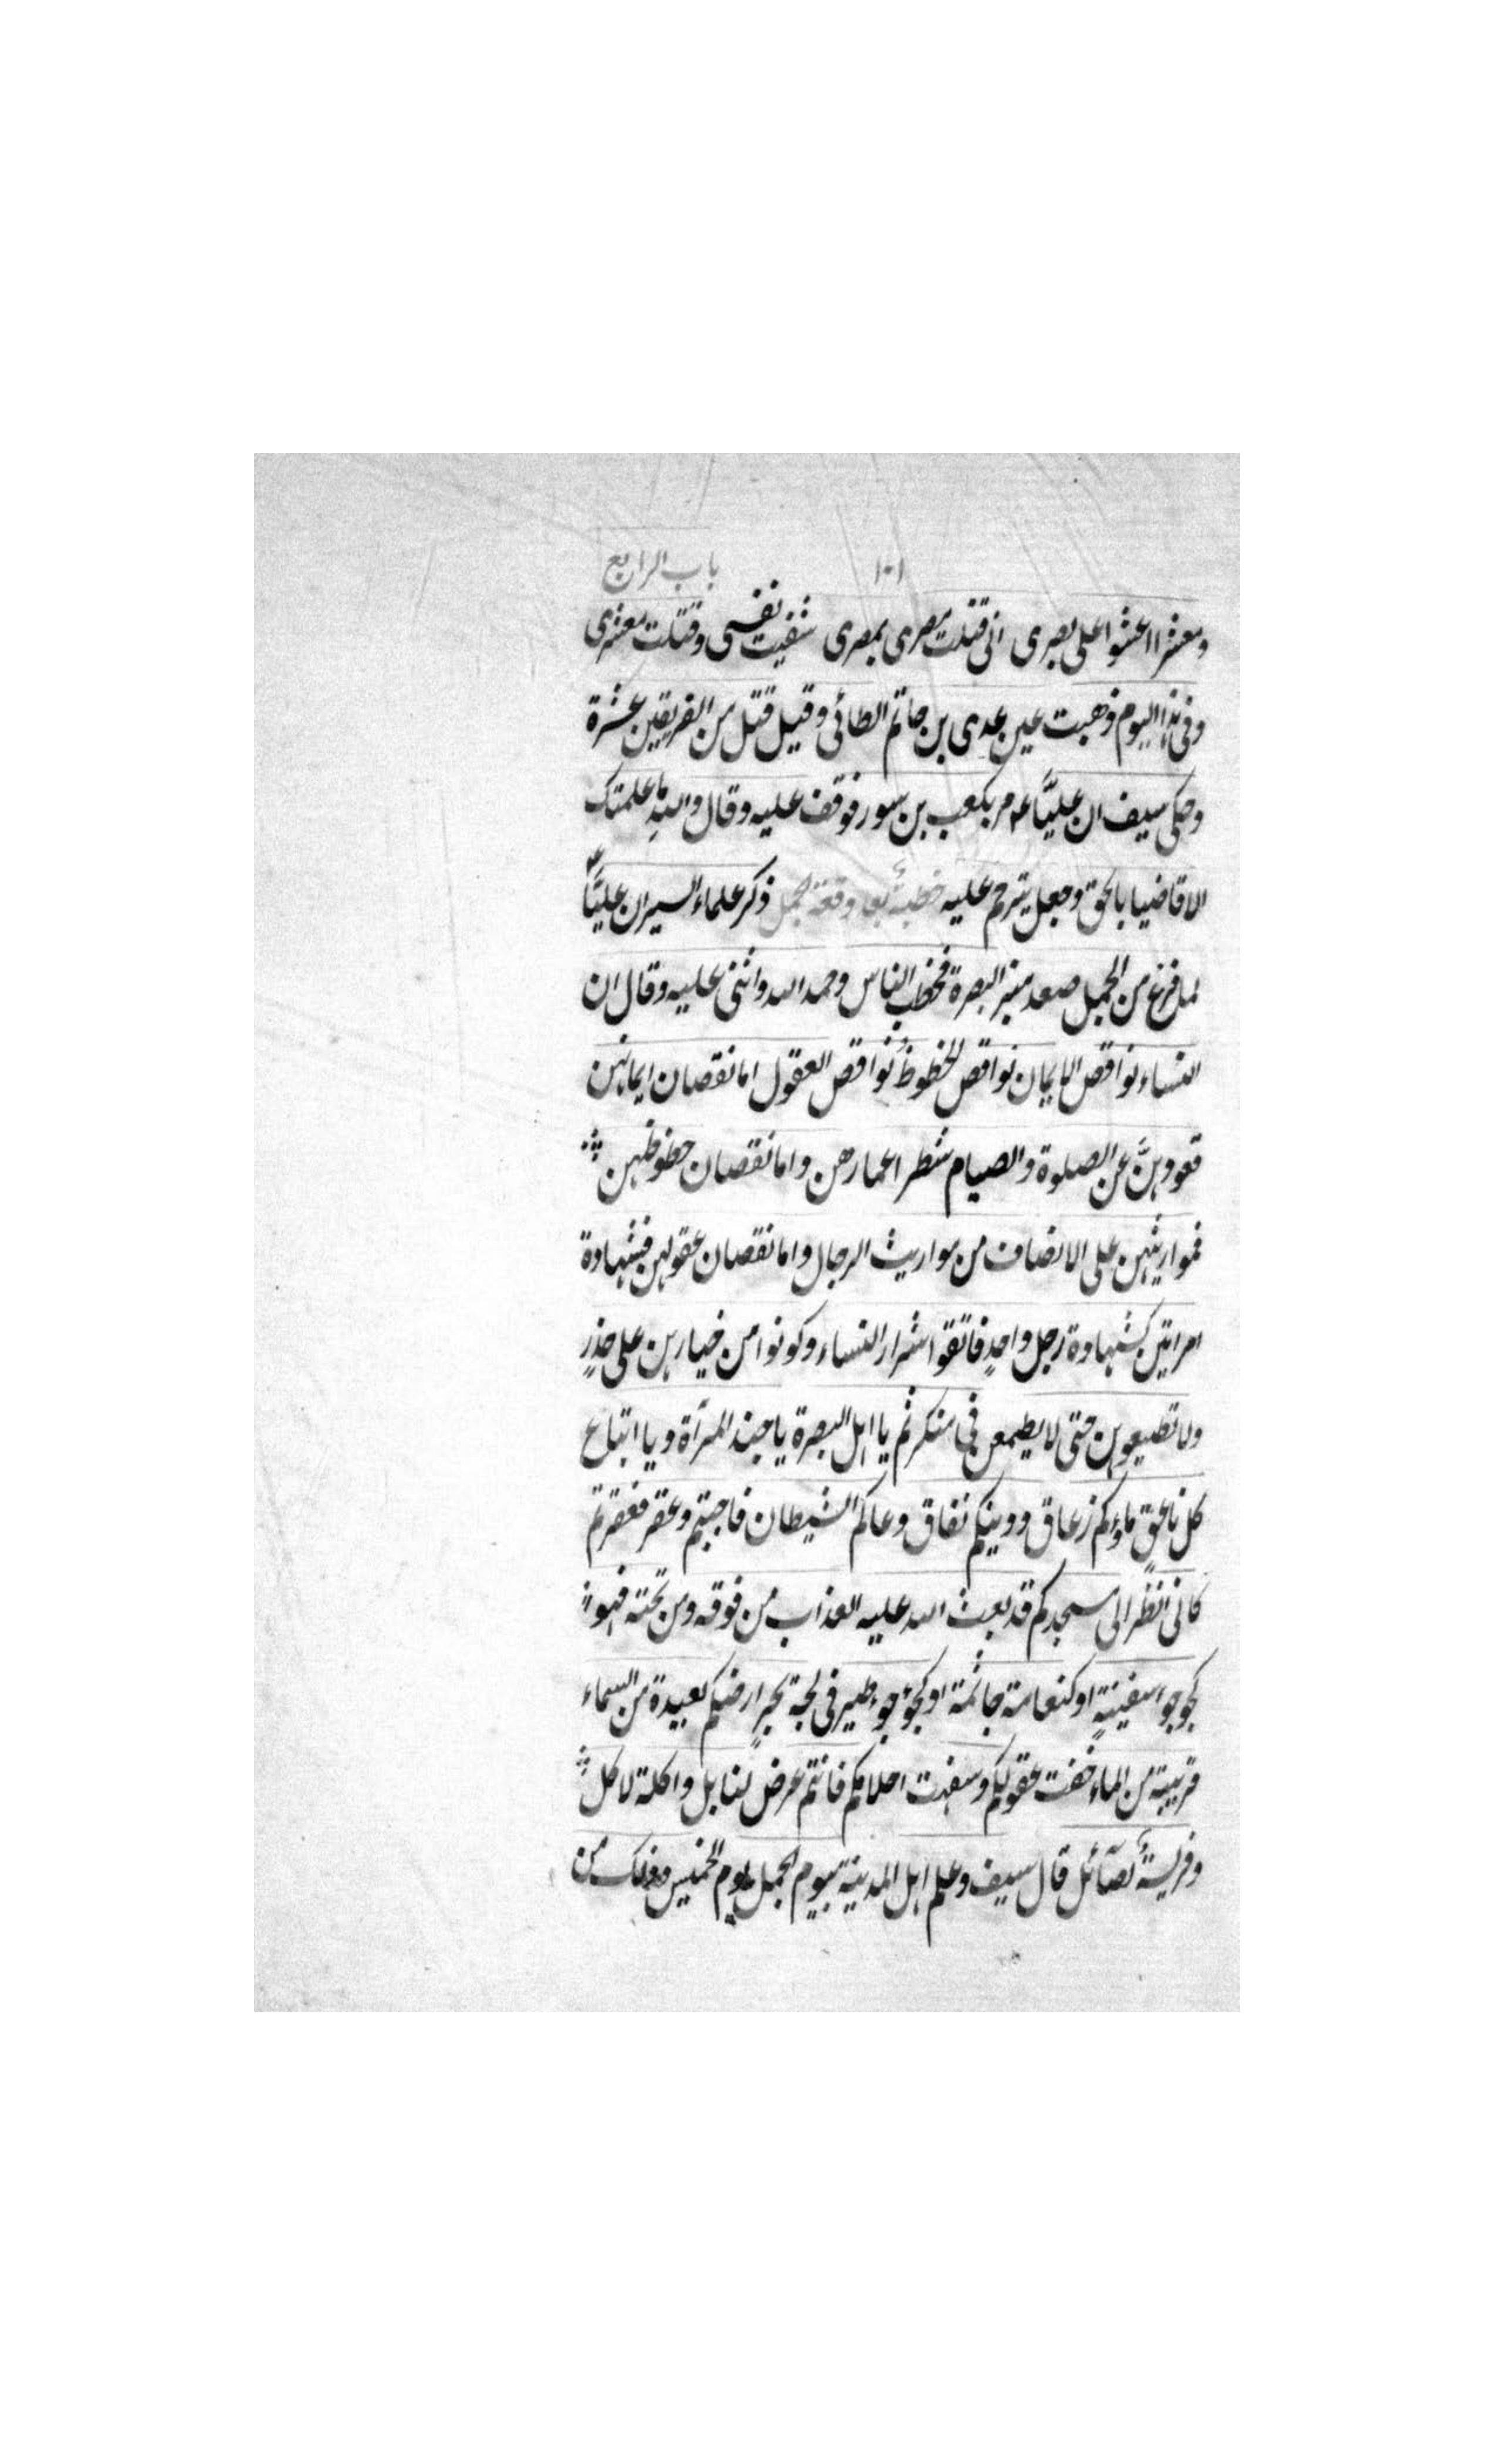 ١٠١ باب الرابع
ومعشرا اعشوا على بصرى انى قتلت مصرى بمصرى شفيت نفسى وقتلت معشرى
وفى هذا اليوم ذهبت عين عدى بن حاتم الطائى وقيل قتل من الفريقين عشرة
وحكى سيف ان عليّا ع مر بكعب بن سور فوقف عليه وقال والله ما علمتك
الا قاضيا بالحق وجعل يترحم عليه خطبة بعد وقعة الجمل ذكر علماء السير ان عليّا
لما فرغ من الجمل صعد منبر البصرة فخطب الناس وحمد الله واثنى عليه وقال ان
النساء نواقص الايمان نواقص الحظوظ نواقص العقول اما نقصان ايمانهن
قعودهنّ عن الصلوة والصيام شطر اعمارهن واما نقصان حظوظهن
فمواريثهن على الانصاف من مواريث الرجال واما نقصان عقولهن فشهادة
امراتين كشهادة رجل واحدٍ فاتقوا شرار النساء وكونوا من خيارهن على حذرٍ
ولا تطيعوهن حتى لا يطمعن فى منكر ثم يا اهل البصرة يا جند المرأة ويا اتباع
كل ناعقٍ ماؤكم زعاق ودينكم نفاق وعاكم الشيطان فاجبتم وعقر فعقرتم
كانى انظر الى مسجدكم قد بعث الله عليه العذاب من فوقه ومن تحته فهو
كجوجوء سفينةٍ او كنعامة جاثمة او كجؤجوء طير فى لجة بحرٍ ارضكم بعيدة من السماء
قريبة من الماء خفت عقولكم وسفهت احلامكم فانتم غرض لنابل واكلة لاكل
وفريسةٌ لصائل قال سيف وعلم اهل المدينة بيوم الجمل يوم الخميس وذلك من